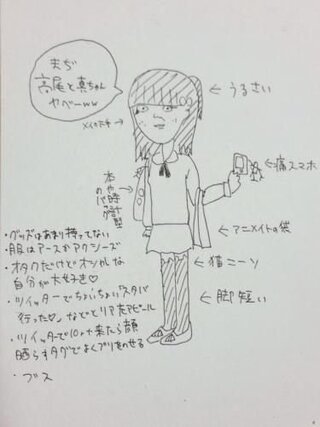 まぢ
高尾と真ちゃん
ヤベーww
うるさい
メイク下手
痛スマホ
アニメイトの袋
猫ニーソ
脚短い
・グッズはあまり持ってない
・服はアースかアクシーズ
・オタクだけどオシャレな
自分が大好き♡
・ツイッターでちょいちょい「スタバ
行った♡」などとリア充アピール
・ツイッターで10rt来たら顔
晒らすタグでよくプリをのせる
・ブス